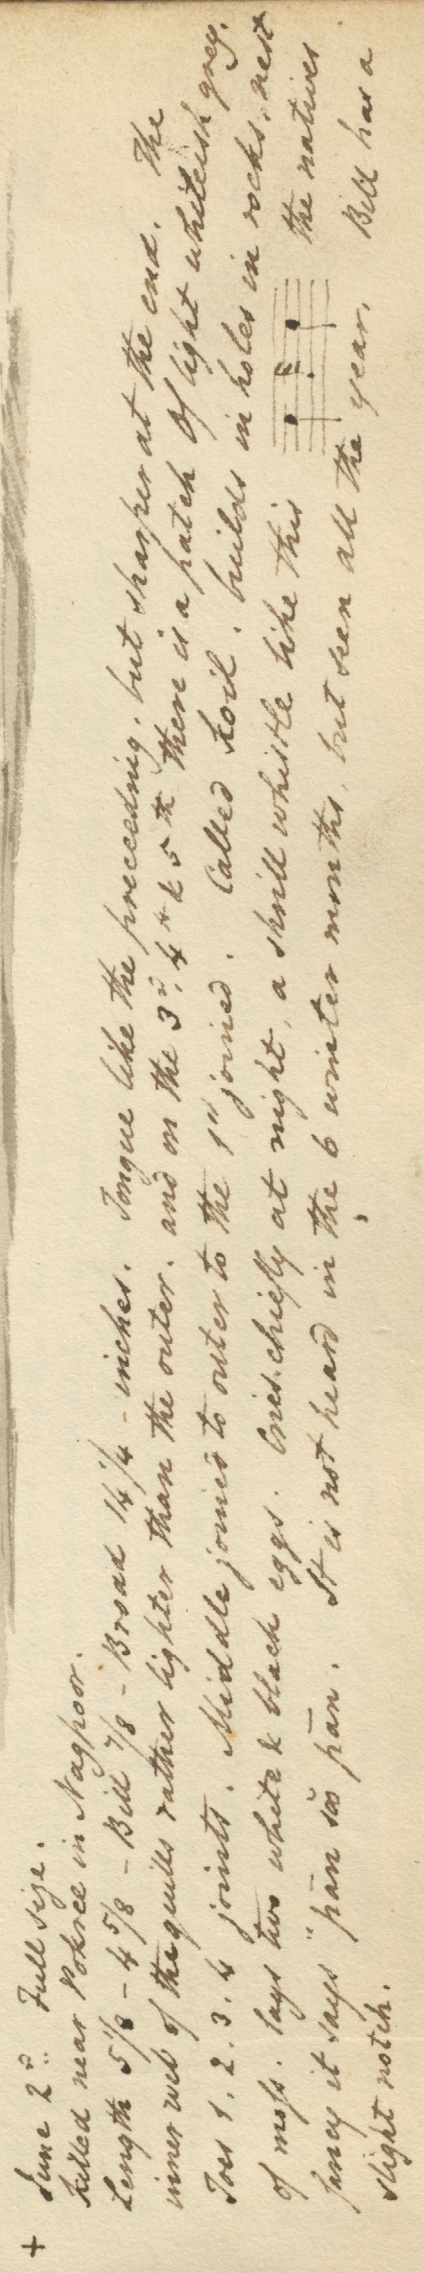 + June 2d. Full size.
Killed near Pokree in Nagpoor.
Length 5 1/8 - 4 5/8 - Bill 7/8 - Broad 14 1/4 - inches. Tongue like the preceeding, but sharper at the end. The
inner web of the quills rather lighter than the outer. and on the 3d, 4th & 5th there is a patch of light whiteish grey.
Toes 1. 2. 3. 4 joints. Middle joined to outer to the 1st joined. Called Koil. builds in holes in rocks, nest
of moss. lays two white & black eggs. Cries chiefly at night, a shrill whistle like this the natives
fancy it says "pān sŏŏ pān. It is not heard in the 6 winter months, but seen all the year. Bill has a
slight notch.